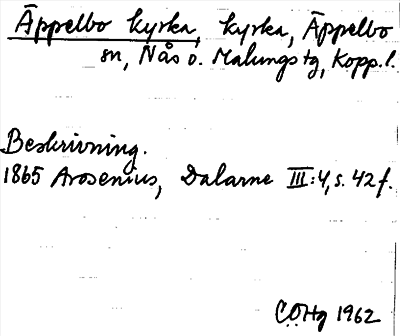 Äppelbo kyrka, kyrka, Äppelbo
sn, Nås o. Malungs tg, Kopp.l.
Beskrivning.
1865 Arosenius, Dalarne III:4, s. 42 f.
CÖHg 1962